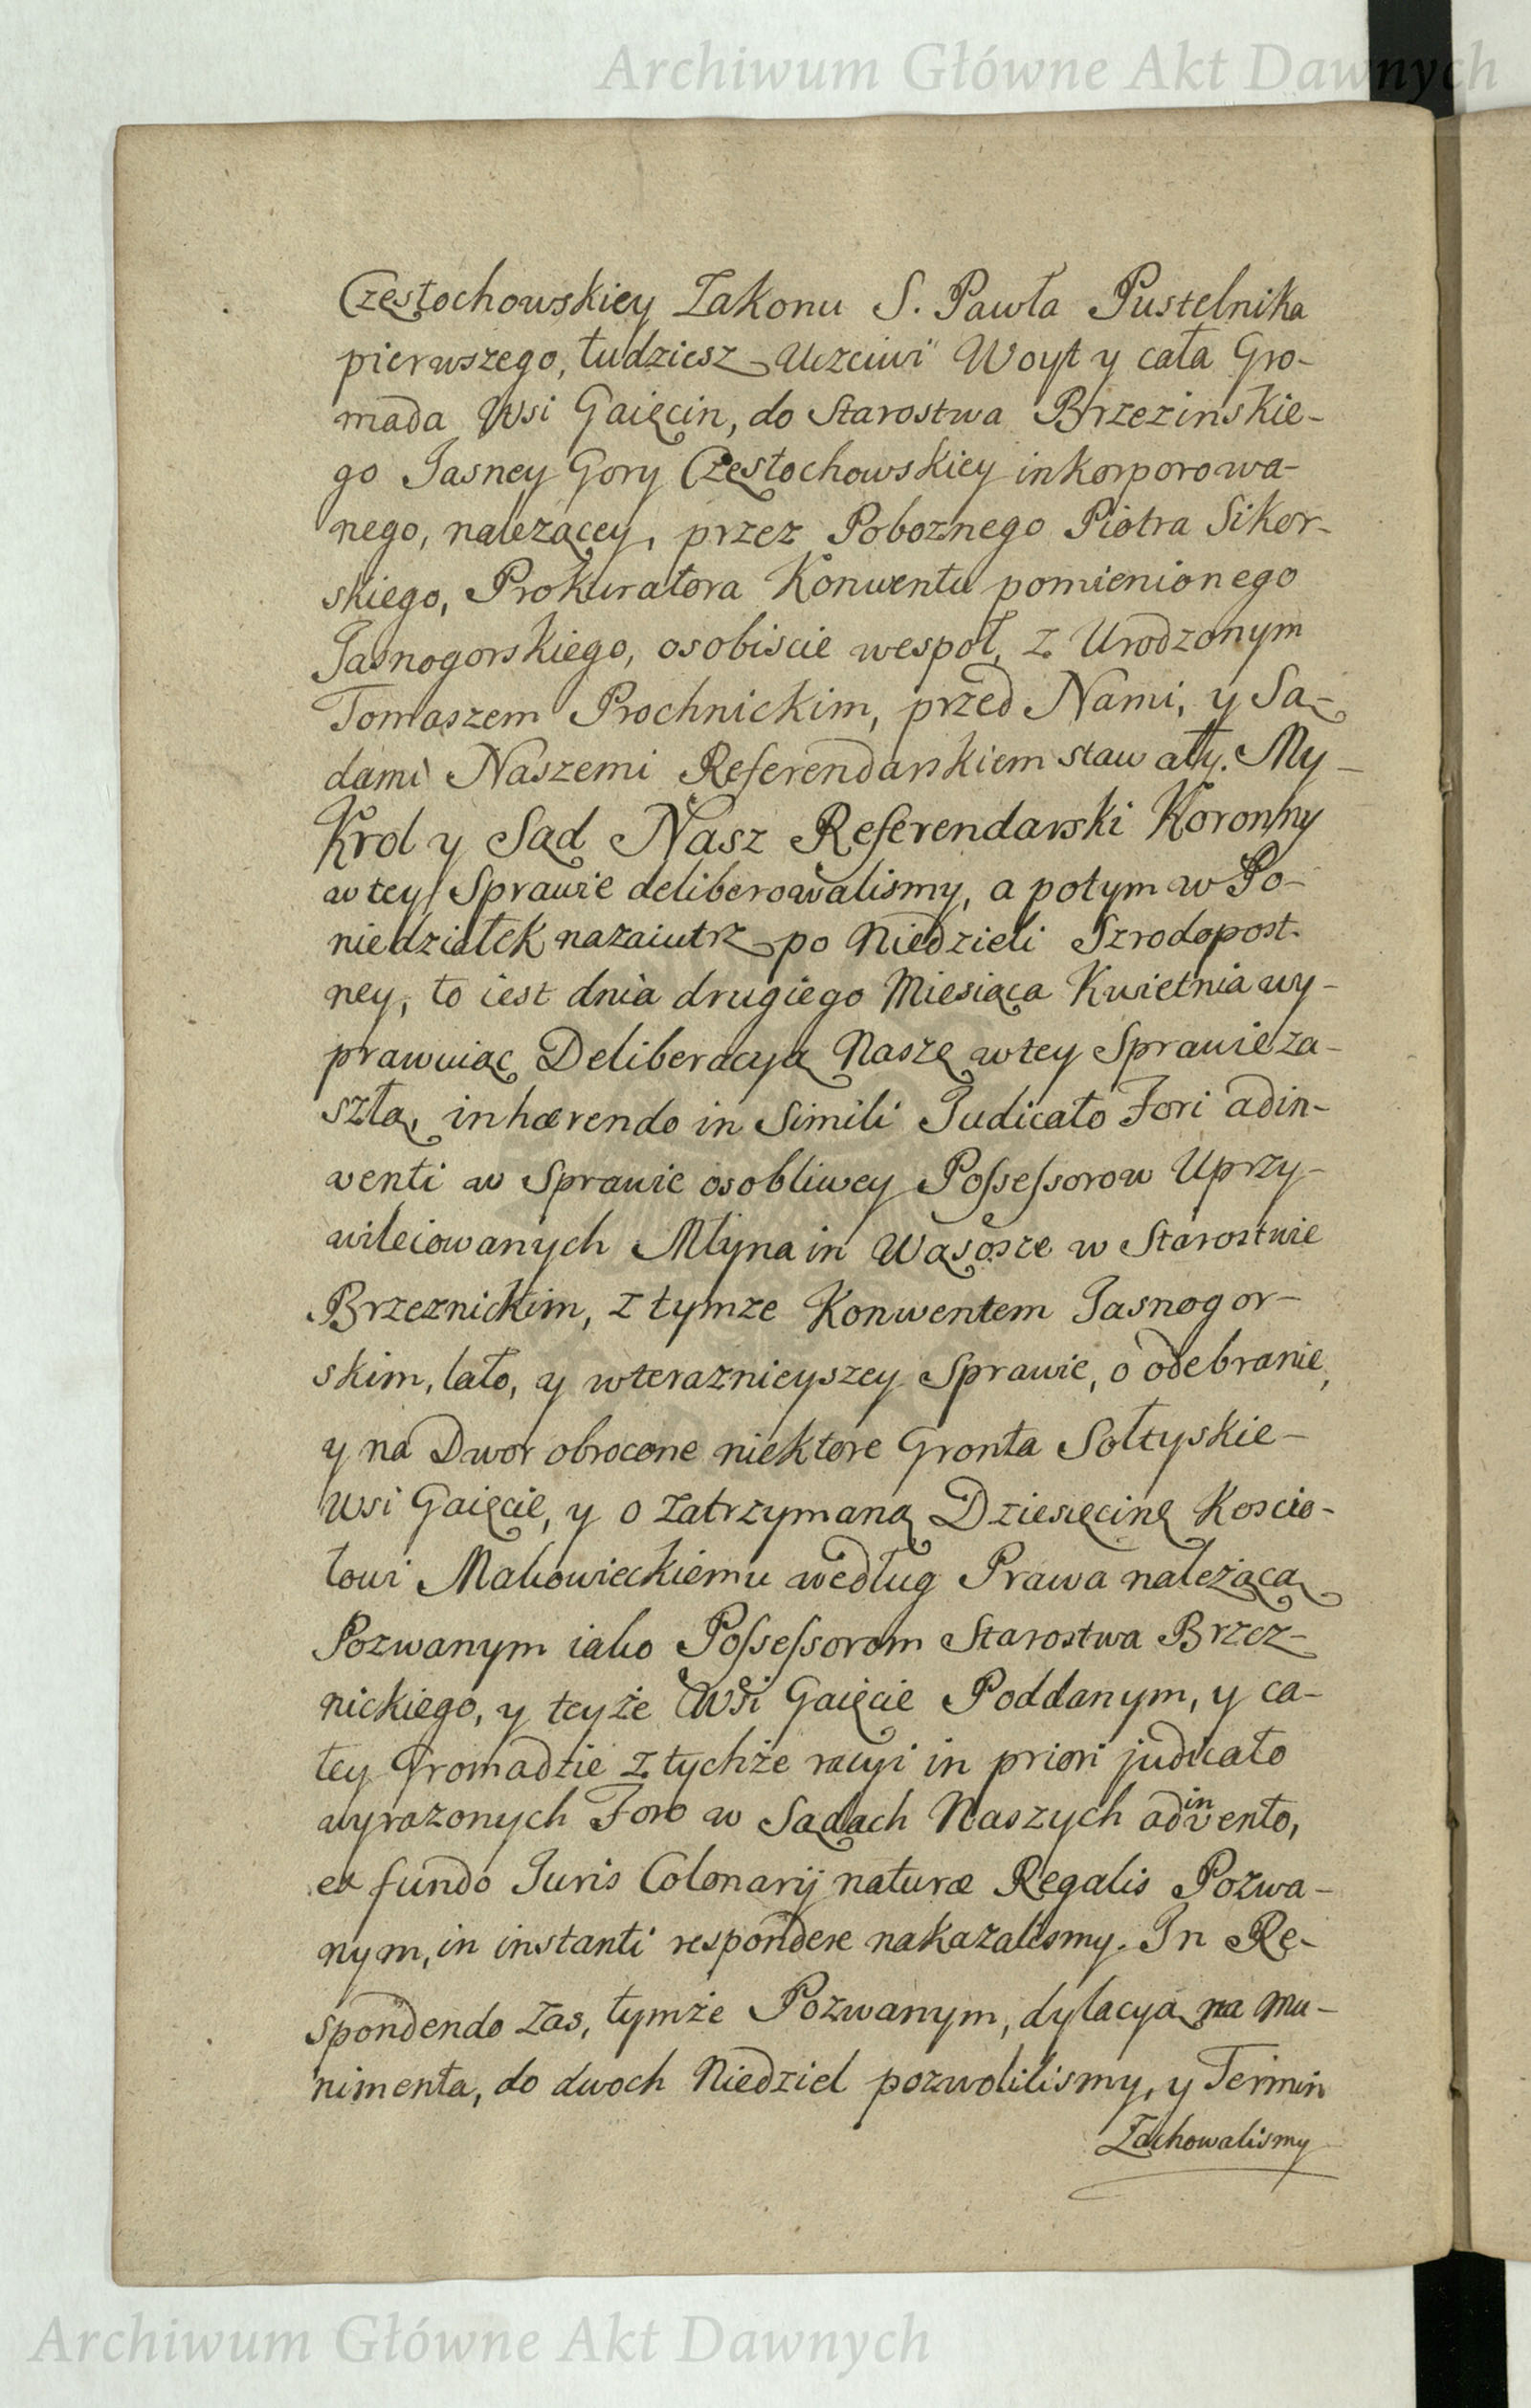 Archiwum Główne Akt Dawnych
Częstochowskiey Zakonu S. Pawła Pustelnika
pierwszego, tudziesz Uczciwi Woyt y cała Gro-
mada Wsi Gaięcin, do Starostwa Brzezinskie-
go Jasney Gory Częstochowskiey inkorporowa-
nego, należącey, przez Pobożnego Piotra Sikor-
skiego, Prokuratora Konwentu pomienionego
Jasnogorskiego, osobiscie wespoł, z Urodzonym
Tomaszem Prochnickim, przed Nami, y Są-
dami Naszemi Referendarskiem stawały. My
Krol y Sąd Nasz Referendarski Koronny
w tey Sprawie deliberowalismy, a potym w Po-
niedziałek nazaiutrz po Niedzieli Szrodopost-
ney, to iest dnia drugiego Miesiąca Kwietnia wy-
prawuiąc Deliberacyą Naszę w tey Sprawie za-
szłą, inhærendo in Simili Judicato Fori adin-
venti w Sprawie osobliwey Possessorow Uprzy-
wileiowanych Młyna in Wąsosze w Starostwie
Brzeznickim, z tymze Konwentem Jasnogor-
skim, lato, y w teraznieyszey Sprawie, o odebranie,
y na Dwor obrocone niektore Gronta Sołtyskie
Wsi Gaięcie, y o zatrzymaną Dziesięcinę Koscio-
łowi Makowieckiemu według Prawa należącą
Pozwanym iako Possessorom Starostwa Brzez-
nickiego, y teyże Wsi Gaięcie Poddanym, y ca-
łey Gromadzie z tychże racyi in priori judicato
wyrazonych Foro w Sądach Naszych adinvento,
ex fundo Juris Colonarij naturæ Regalis Pozwa-
nym, in instanti respondere nakazalismy. In Re-
spondendo zas, tymże Pozwanym, dylacyą na Mu-
nimenta, do dwoch Niedziel pozwolilismy, y Termin
Zachowalismy
Archiwum Główne Akt Dawnych